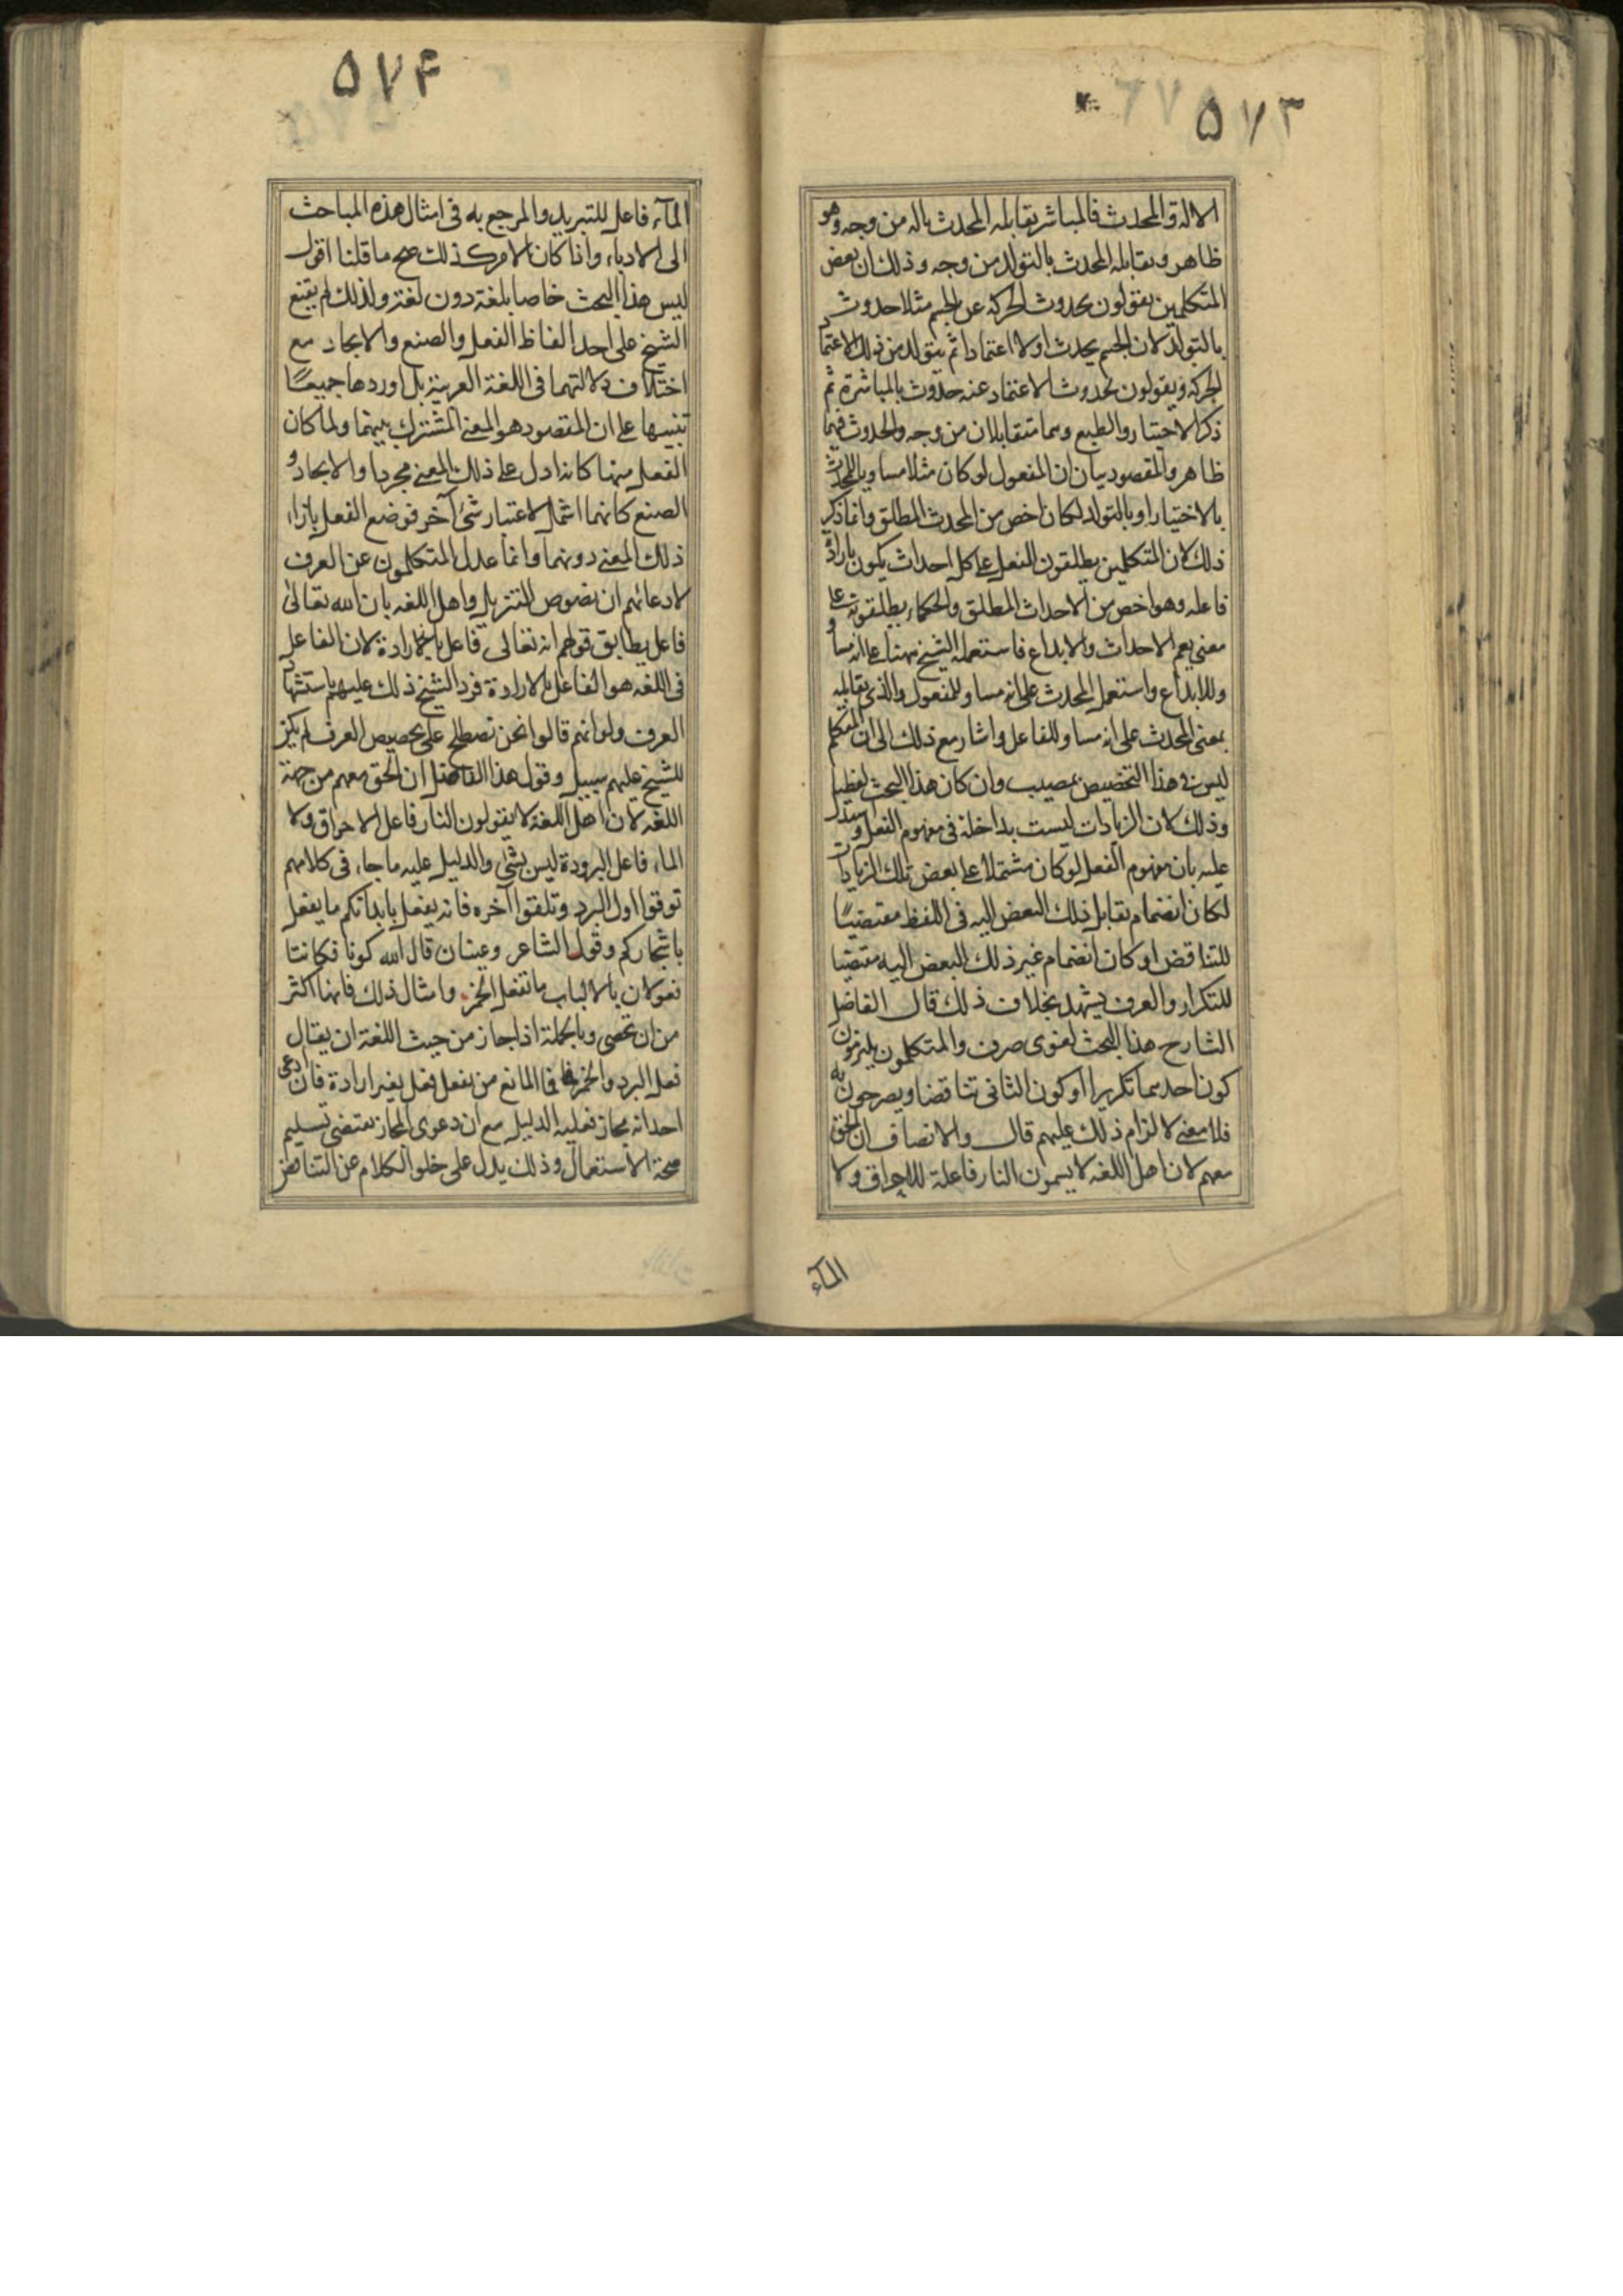 ۵۷۳
الالة والمحدث فالمباشر يقابله المحدث بالة من وجه وهو
ظاهر ويقابله المحدث بالتولد من وجه وذلك ان بعض
المتكلمين يقولون بحدوث الحركة عن الجسم مثلا حدوث
بالتولد لان الجسم يحدث اولا اعتمادا ثم يتولد من ذلك الاعتماد
الحركة ويقولون بحدوث الاعتماد عنه حدوث بالمباشرة ثم
ذكر الاختيار والطبع وهما متقابلان من وجه والحدوث فيهما
ظاهر والمقصود بيان ان المفعول لو كان مثلا مساويا للمحدث
بالاختيار او بالتولد لكان اخص من المحدث المطلق وانما ذكر
ذلك لان المتكلمين يطلقون الفعل على كل احداث يكون بارادة
فاعله وهو اخص من الاحداث المطلق والحكماء يطلقونه على
معنى يعم الاحداث والابداع فاستعمله الشيخ ههنا على انه مساو
وللابداع واستعمل المحدث على انه مساو للمفعول والذى يقابله
بمعنى المحدث على انه مساو للفاعل واشار مع ذلك الى ان المتكلم
ليس فى هذا التخصيص بمصيب وان كان هذا البحث لفظيا
وذلك لان الزيادات ليست بداخلة فى مفهوم الفعل واستدل
عليه بان مفهوم الفعل لو كان مشتملا على بعض تلك الزيادات
لكان انضمام تقابل ذلك البعض اليه فى اللفظ مقتضيًا
للتناقض او كان انضمام غير ذلك البعض اليه مقتضيا
للتكرار والعرف يشهد بخلاف ذلك قال الفاضل
الشارح هذا البحث لغوى صرف والمتكلمون يلتزمون
كون احدهما تكريرا او كون الثانى تناقضا ويصرحون به
فلا معنى لالزام ذلك عليهم قال والانصاف ان الحق
معهم لان اهل اللغه لا يسمون النار فاعلة للاحراق ولا
المآء
۵۷۴
المآء فاعل للتبريد والمرجع به فى امثال هذه المباحث
الى الادباء واذا كان الامر كذلك صح ما قلنا اقول
ليس هذا البحث خاصا بلغة دون لغة ولذلك لم يقنع
الشيخ على احد الفاظ الفعل والصنع والايجاد مع
اختلاف دلالتهما فى اللغة العربية بل اوردها جميعًا
تنبيها على ان المقصود هو المعنى المشترك بينهما ولما كان
الفعل منها كانه ادل على ذلك المعنى مجردا والايجاد و
الصنع كانهما اشمل لاعتبار شئ آخر فوضع الفعل بازاء
ذلك المعنى دونهما وانما عدل المتكلمون عن العرف
لادعائهم ان نصوص التنزيل واهل اللغه بان الله تعالى
فاعل يطابق قولهم انه تعالى فاعل بالارادة لان الفاعل
فى اللغه هو الفاعل بالارادة فرد الشيخ ذلك عليهم باستشهاد
العرف ولو انهم قالوا نحن نصطلح على تخصيص العرف لم يكن
للشيخ عليهم سبيل وقول هذا الفاضل ان الحق معهم من جهة
اللغه لان اهل اللغة لا يقولون النار فاعل الاحراق ولا
الماء فاعل البرودة ليس بشئ والدليل عليه ما جاء فى كلامهم
توقوا اول البرد وتلقوا آخره فانه يفعل بابدانكم ما يفعل
باشجاركم وقول الشاعر وعينان قال الله كونا فكانتا
فعولان بالالباب ما تفعل الخمر وامثال ذلك فانها اكثر
من ان تحصى وبالجملة اذا جاز من حيث اللغة ان يقال
فعل البرد والخمر فما المانع من يفعل فعل بغير ارادة فان ادعى
احد انه مجاز فعليه الدليل مع ان دعوى المجاز تقتضى تسليم
صحة الاستعمال وذلك يدل على خلو الكلام عن التناقض